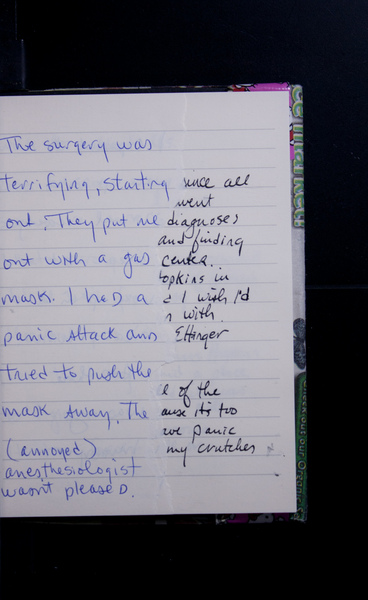 The surgery was
terrifying, starting
out. They put me
out with a gas
mask. I had a
panic attack and
tried to push the
mask away. The
(annoyed)
anesthesiologist
wasn't pleased.
since all
went
diagnoses
and finding
center.
opkins in
I wish I'd
with.
Ettinger
of the
ause it's too
ve panic
my crutches